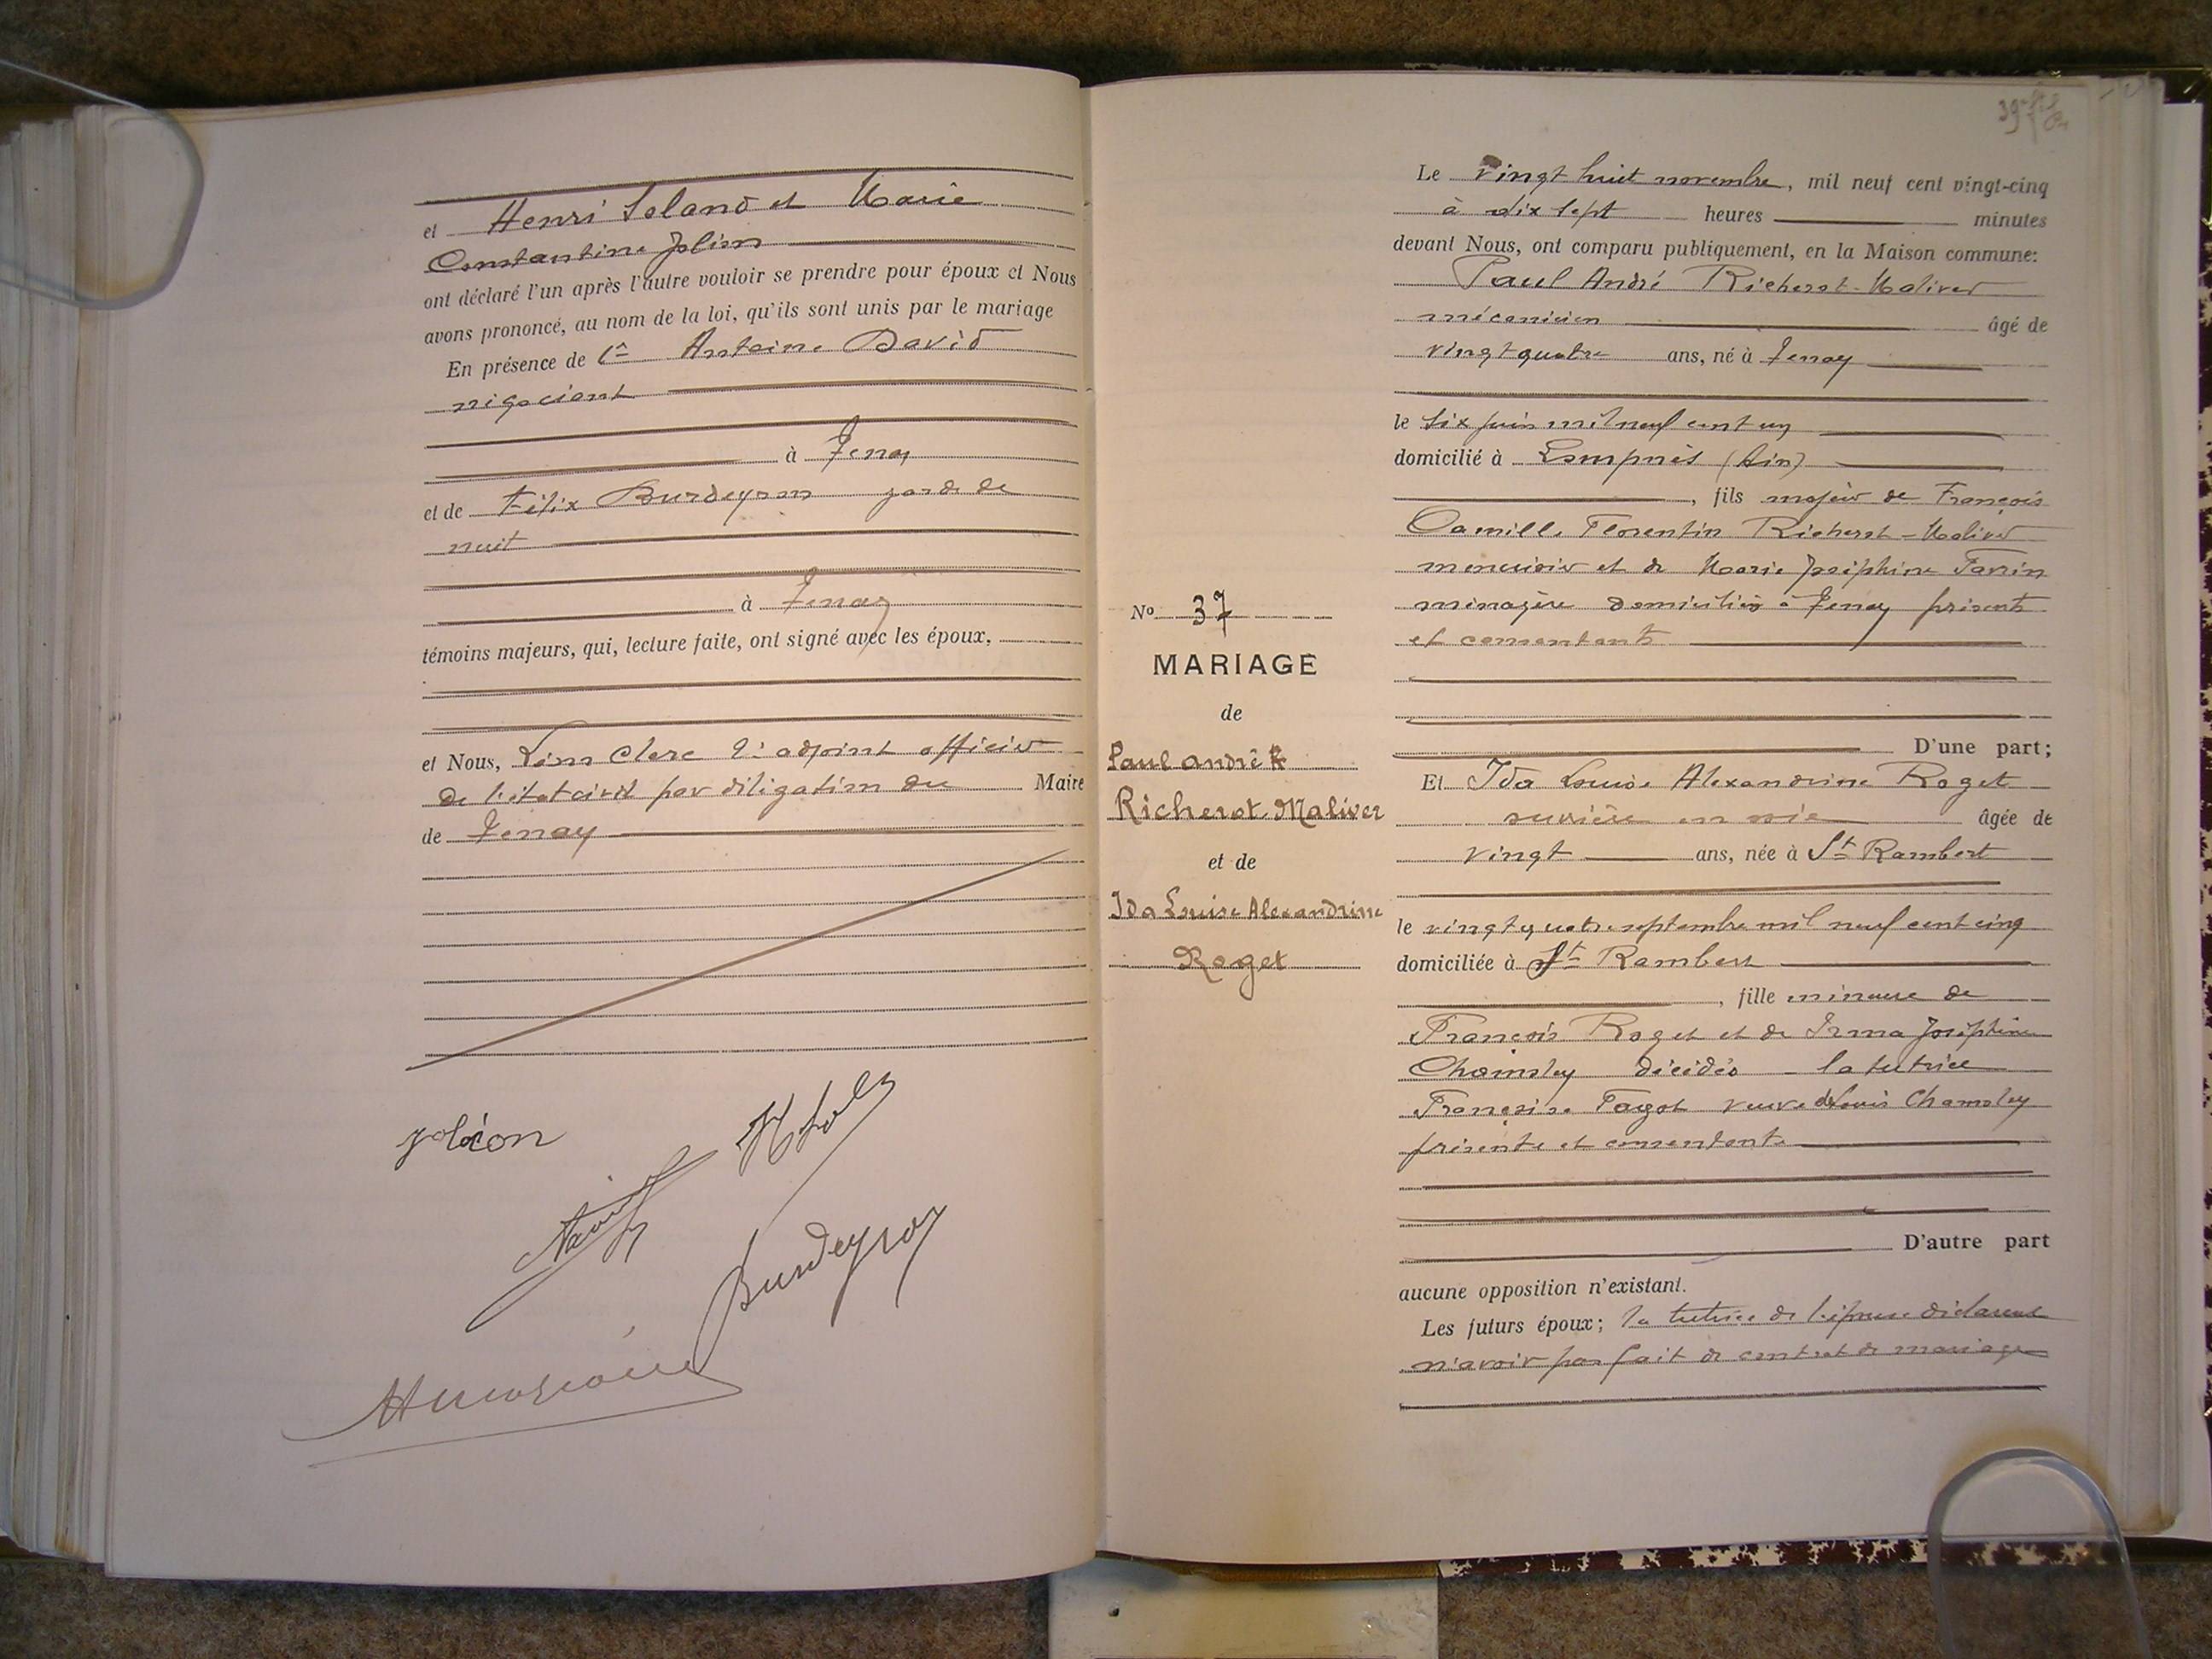 et Henri Soland et Marie
Constantine Jolion
ont déclaré l'un après l'autre vouloir se prendre pour époux et Nous
avons prononcé, au nom de la loi, qu'ils sont unis par le mariage
En présence de Antoine David
négociant
à Tenay
et de Félix Burdeyron garde de
nuit
à Tenay
témoins majeurs, qui, lecture faite, ont signé avec les époux,
et Nous, Léon Clerc adjoint officier
de l'état civil par délégation du Maire
de Tenay
jolion
Burdeyron
Le vingt huit novembre, mil neuf cent vingt-cinq
à dix sept heures minutes
devant Nous, ont comparu publiquement, en la Maison commune:
Paul André Richerot-Maliver
mécanicien âgé de
vingt quatre ans, né à Tenay
le six juin mil neuf cent un
domicilié à Lompnès (Ain)
, fils majeur de François
Camille Florentin Richerot-Maliver
menuisier et de Marie Joséphine
ménagère domiciliés à Tenay présents
et consentants
D'une part;
Et Ida Louise Alexandrine Roget
ouvrière en soie âgée de
vingt ans, née à St Rambert
le vingt quatre septembre mil neuf cent cinq
domiciliée à St Rambert
, fille mineure de
François Roget et de Irma Joséphine
Chamoley décédés - la tutrice
Françoise Fagot veuve de Louis Chamoley
présente et consentante
D'autre part
aucune opposition n'existant.
Les futurs époux; la tutrice de l'épouse déclarent
n'avoir pas fait de contrat de mariage
No 37
MARIAGE
de
Paul André R
Richerot-Maliver
et de
Ida Louise Alexandrine
Roget